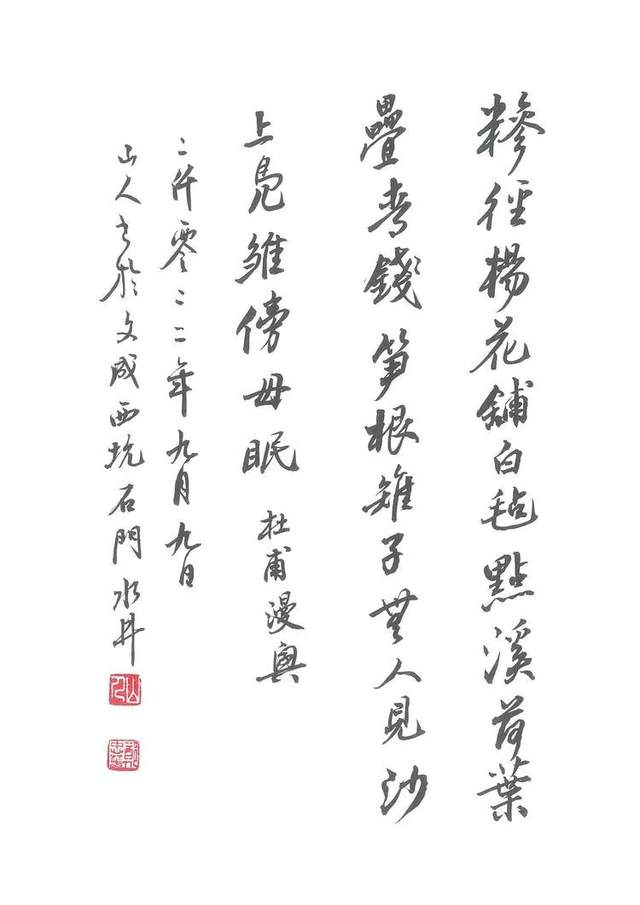 糝徑楊花舖白毡點溪荷葉
疊青錢笋根雉子無人見沙
上鳧雛傍母眠 杜甫漫興
二仟零二二年九月九日
山人书於文成西坑石門水井
山人